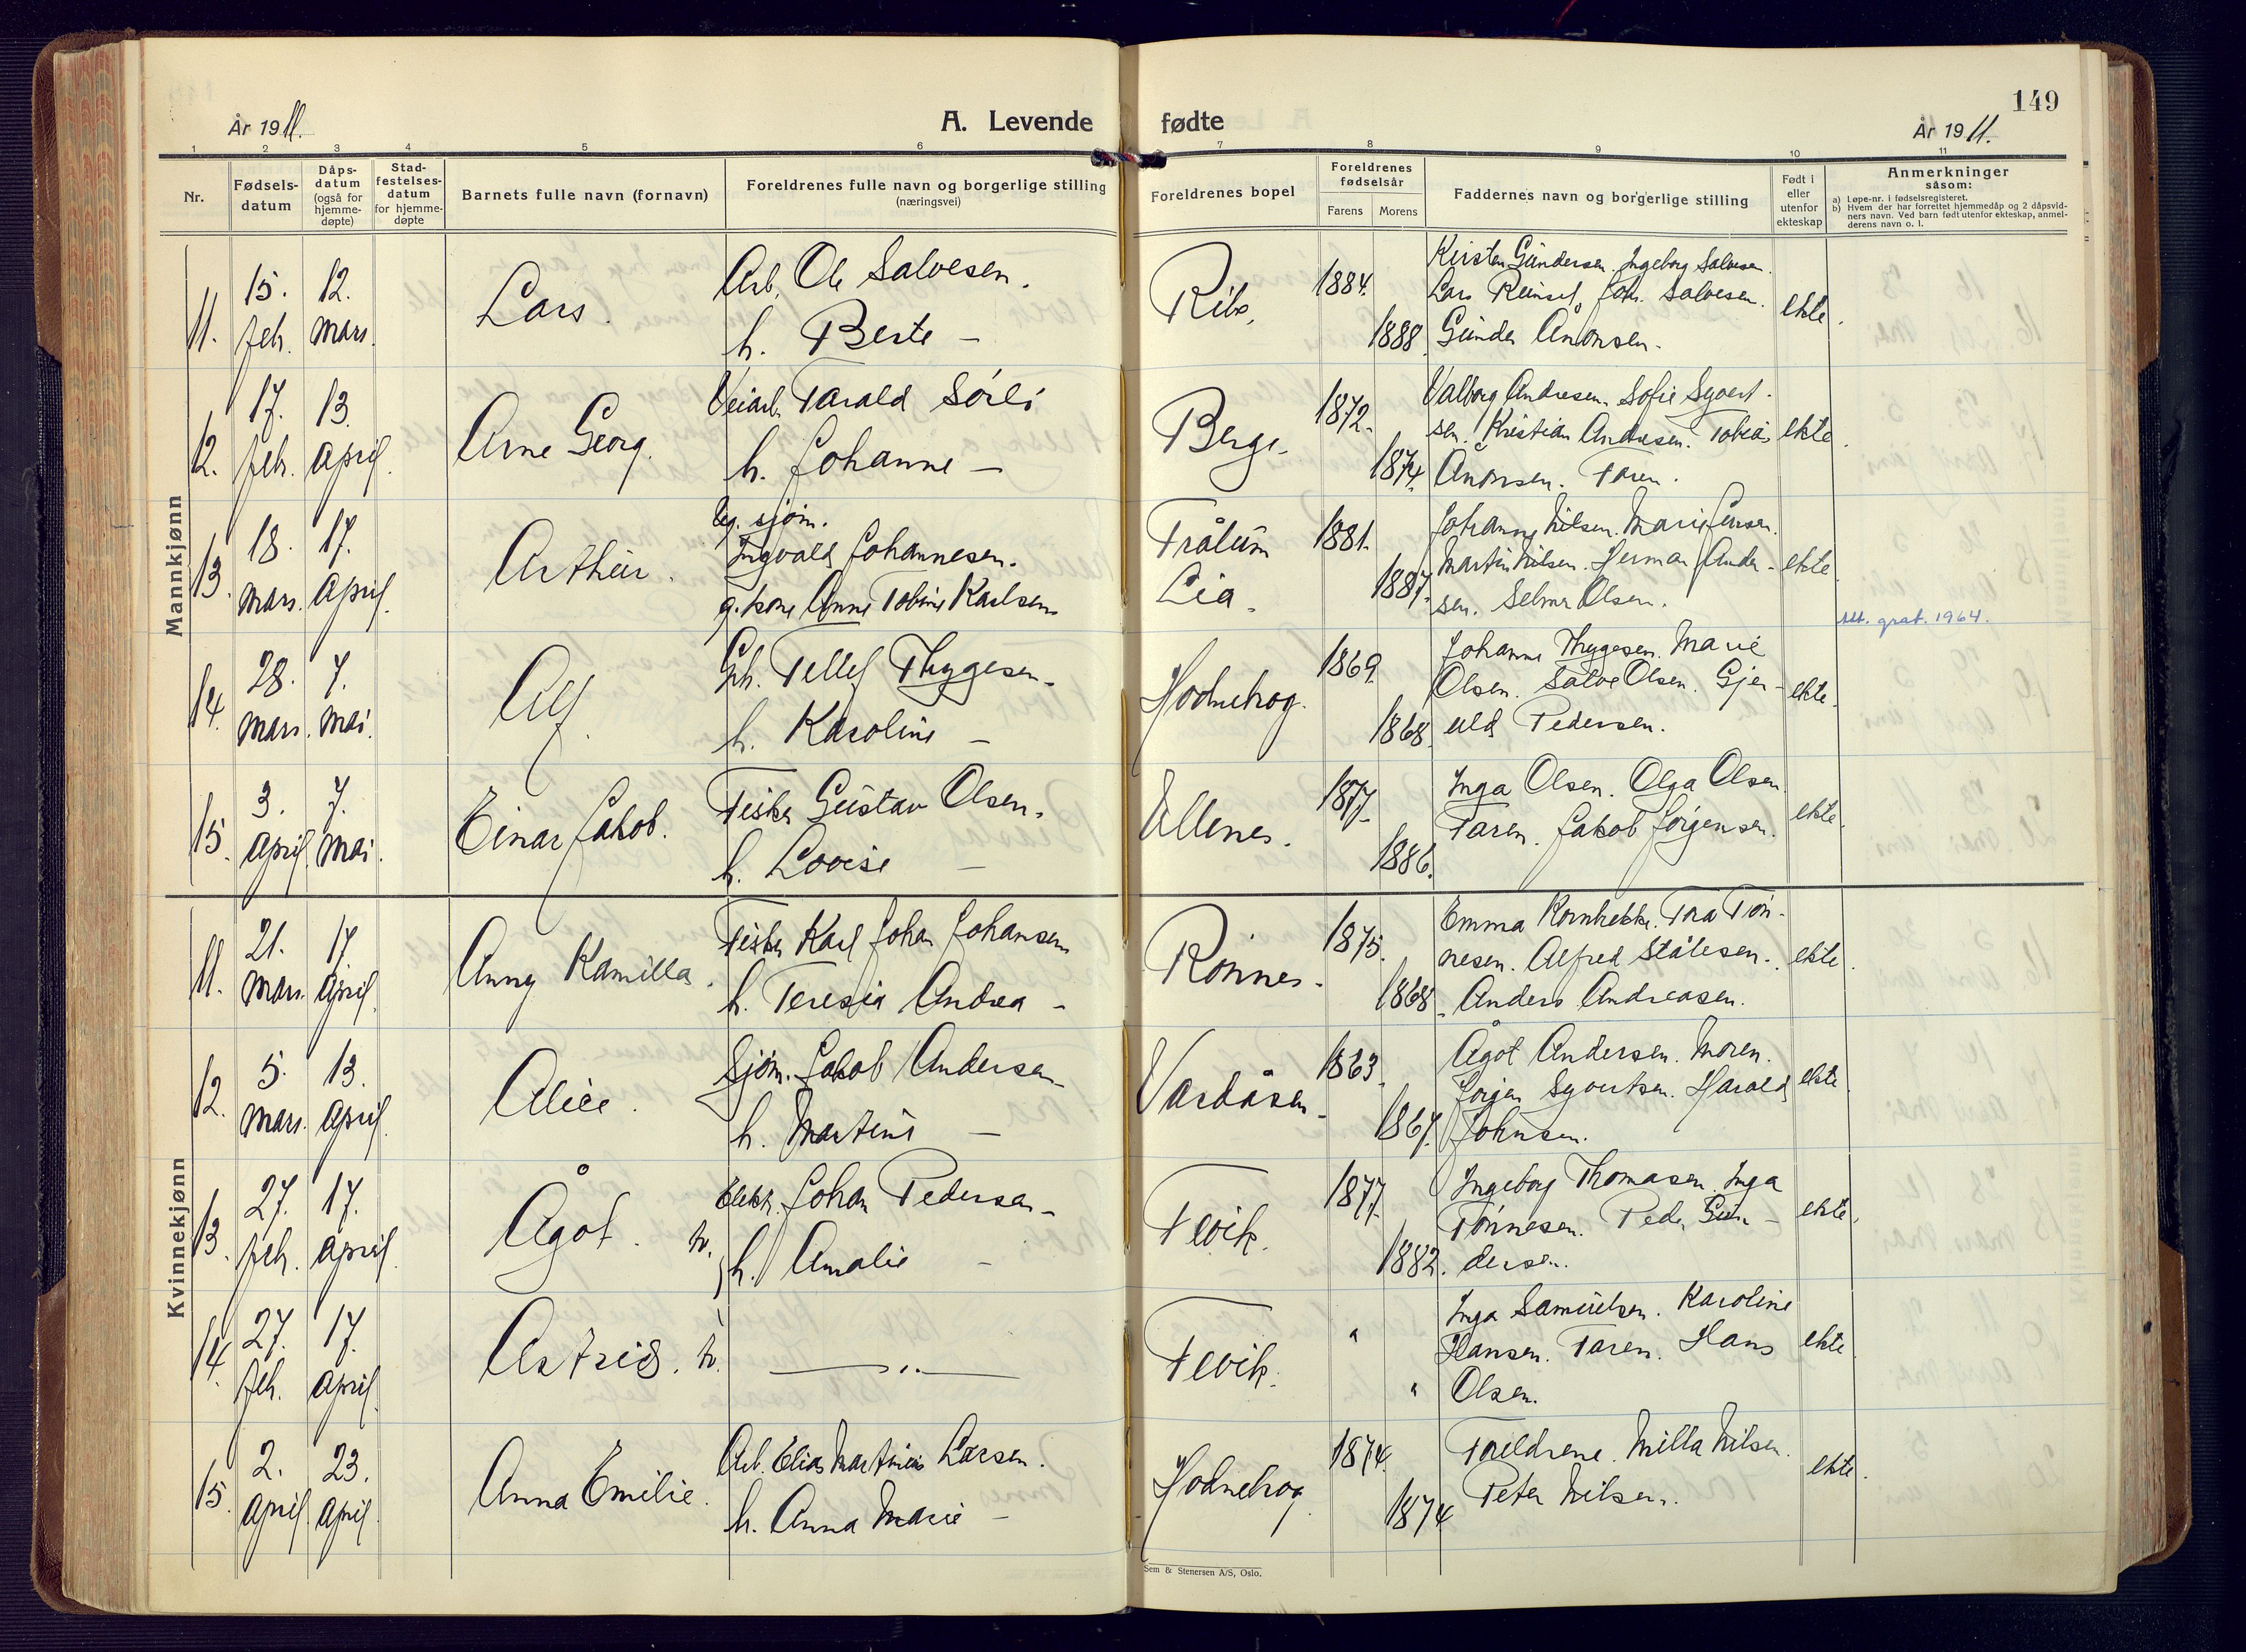 149
År 1911.
A. Levende fødte
År 1911.
1 2 3 4 5 6 7 8 9 10 11
Nr.
Fødsels-
datum
Dåps-
datum
(også for
hjemme-
døpte)
Stad-
festelses-
datum
for hjemme-
døpte
Barnets fulle navn (fornavn)
Foreldrenes fulle navn og borgerlige stilling
(næringsvei)
Foreldrenes bopel
Foreldrenes
fødselsår
Farens Morens
Faddernes navn og borgerlige stilling
Født i
eller
utenfor
ekteskap
Anmerkninger
såsom:
a) Løpe-nr. i fødselsregisteret.
b) Hvem der har forrettet hjemmedåp og 2 dåpsvid-
ners navn. Ved barn født utenfor ekteskap, anmel-
derens navn o. l.
Mannkjønn
11. 15. febr. 12. mars. Lars.
Arb. Ole Salvesen.
h. Berte –
Rib. 1884. 1888
Kirsten Gundersen. Ingeborg Salvesen.
Lars Joh. Salvesen.
Gunder Anonsen.
ekte.
12. 17. febr. 13. april. Arne Georg.
Veiarb. Tarald Sørli
h. Johanne –
Berge. 1872. 1874.
Valborg Andresen. Sofie Syvert-
sen. Kristian Andresen. Tobias
Ånonsen. Faren.
ekte.
13. 18. mars. 17. april. Arthur.
Ug. sjøm.
Ingvald Johannesen.
g. kone Anne Tobine Karlsen
Frålum
Lia. 1881. 1887.
Johanne Nilsen. Marie Jensen.
Martin Nilsen. Herman Ander-
sen. Selmer Olsen.
ekte.
Att. grat. 1964.
14. 28. mars. 7. mai. Alf.
Gbr. Tellef Thygesen.
h. Karoline –
Hodnebrog. 1869. 1868.
Johanne Thygesen. Marie
Olsen. Salve Olsen. Gjer-
uld Pedersen.
ekte.
15. 3. april. 7. mai. Einar Jakob.
Fisker Gustav Olsen.
h. Lovise –
Ullenes. 1877. 1886.
Inga Olsen. Olga Olsen
Faren. Jakob Jørgensen.
ekte.
Kvinnekjønn
11. 21. mars. 17. april. Anny Kamilla.
Fisker Karl Johan Johansen
h. Teresia Andrea –
Rønnes. 1875. 1868.
Emma Kornbekke. Tora Tøn-
nesen. Alfred Stålesen.
Anders Andreasen.
ekte.
12. 5. mars. 13. april. Alice.
Sjøm. Jakob Andersen
h. Martine –
Vardåsen. 1863. 1867.
Ågot Andersen. Moren.
Jørgen Syvertsen. Harald
Johnsen.
ekte.
13. 27. febr. 17. april. Ågot. tv.
Elektr. Johan Pedersen.
h. Amalie –
Fevik. 1877. 1882.
Ingeborg Thomasen. Inga
Tønnesen. Peder Gun-
dersen.
ekte.
14. 27. feb. 17. april. Astrid. tv.
— „ —
Fevik. " "
Inga Samuelsen. Karoline
Hansen. Faren. Hans
Olsen.
ekte.
15. 2. april 23. april. Anna Emilie.
Arb. Elias Martinius Larsen.
h. Anna Marie –
Hodnebrog. 1874. 1874
Foreldrene. Milla Nilsen.
Peter Nilsen.
ekte.
Sem & Stenersen A/S, Oslo.